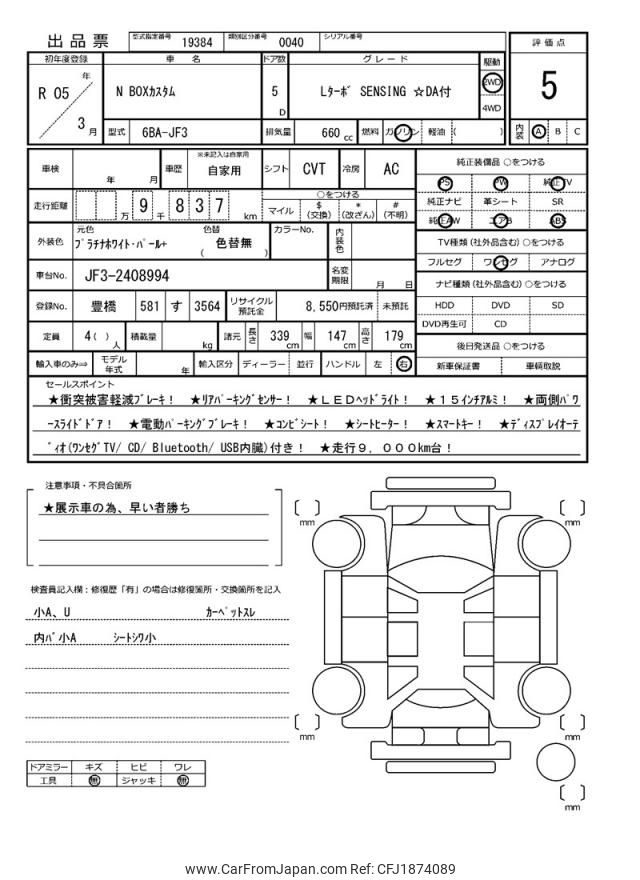 出品票 型式指定番号 19384 類別区分番号 0040 シリアル番号
初年度登録 車名 ドア数 グレード 駆動 評価点
R 05 年 3 月 N BOXカスタム 5 D Lターボ SENSING ☆DA付 2WD 4WD 5
型式 6BA-JF3 排気量 660 cc 燃料 ガソリン 軽油 ( ) 内装 A B C
車検 年 月 車歴 ※未記入は自家用 自家用 シフト CVT 冷房 AC 純正装備品 ○をつける
PS PW 純正TV
走行距離 万 9 千 8 3 7 km ○をつける
マイル $(交換) *(改ざん) #(不明)
純正ナビ 革シート SR
純正AW エアB ABS
外装色 元色 プラチナホワイト・パール+ 色替 ( 色替無 ) カラーNo. 内装色
TV種類(社外品含む) ○をつける
フルセグ ワンセグ アナログ
車台No. JF3-2408994 名変期限 月 日
ナビ種類(社外品含む) ○をつける
登録No. 豊橋 581 す 3564 リサイクル預託金 8,550円預託済 未預託
HDD DVD SD
DVD再生可 CD
定員 4( ) 人 積載量 kg 諸元 長さ 339 cm 幅 147 cm 高さ 179 cm
後日発送品 ○をつける
輸入車のみ⇒ モデル年式 年 輸入区分 ディーラー 並行 ハンドル 左 右
新車保証書 車輌取説
セールスポイント
★衝突被害軽減ブレーキ! ★リアパーキングセンサー! ★LEDヘッドライト! ★15インチアルミ! ★両側パワ
ースライドドア! ★電動パーキングブレーキ! ★コンビシート! ★シートヒーター! ★スマートキー! ★ディスプレイオーデ
ィオ(ワンセグTV/ CD/ Bluetooth/ USB内臓)付き! ★走行9,000km台!
注意事項・不具合箇所
★展示車の為、早い者勝ち
検査員記入欄:修復歴「有」の場合は修復箇所・交換箇所を記入
小A、U カーペットスレ
内バ小A シートシワ小
mm
mm
mm
mm
mm
ドアミラー キズ ヒビ ワレ
工具 無 ジャッキ 無
www.CarFromJapan.com Ref: CFJ1874089